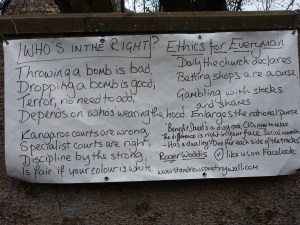 WHO'S IN THE RIGHT?
Throwing a bomb is bad,
Dropping a bomb is good;
Terror, no need to add,
Depends on who's wearing the hood.
Kangaroo courts are wrong,
Specialist courts are right,
Discipline by the strong
Is fair if your colour is white
Ethics for Everyman
Daily the church declares
Betting shops are a curse.
Gambling with stocks
and shares
Enlarges the national purse
Benefit cheats a disgrace. CEOs
to relax
The difference is right in your face. Social
Has a duality! One for each side of the tracks
Roger Woddis
like us on Facebook
www.standrewspoetrywall.com